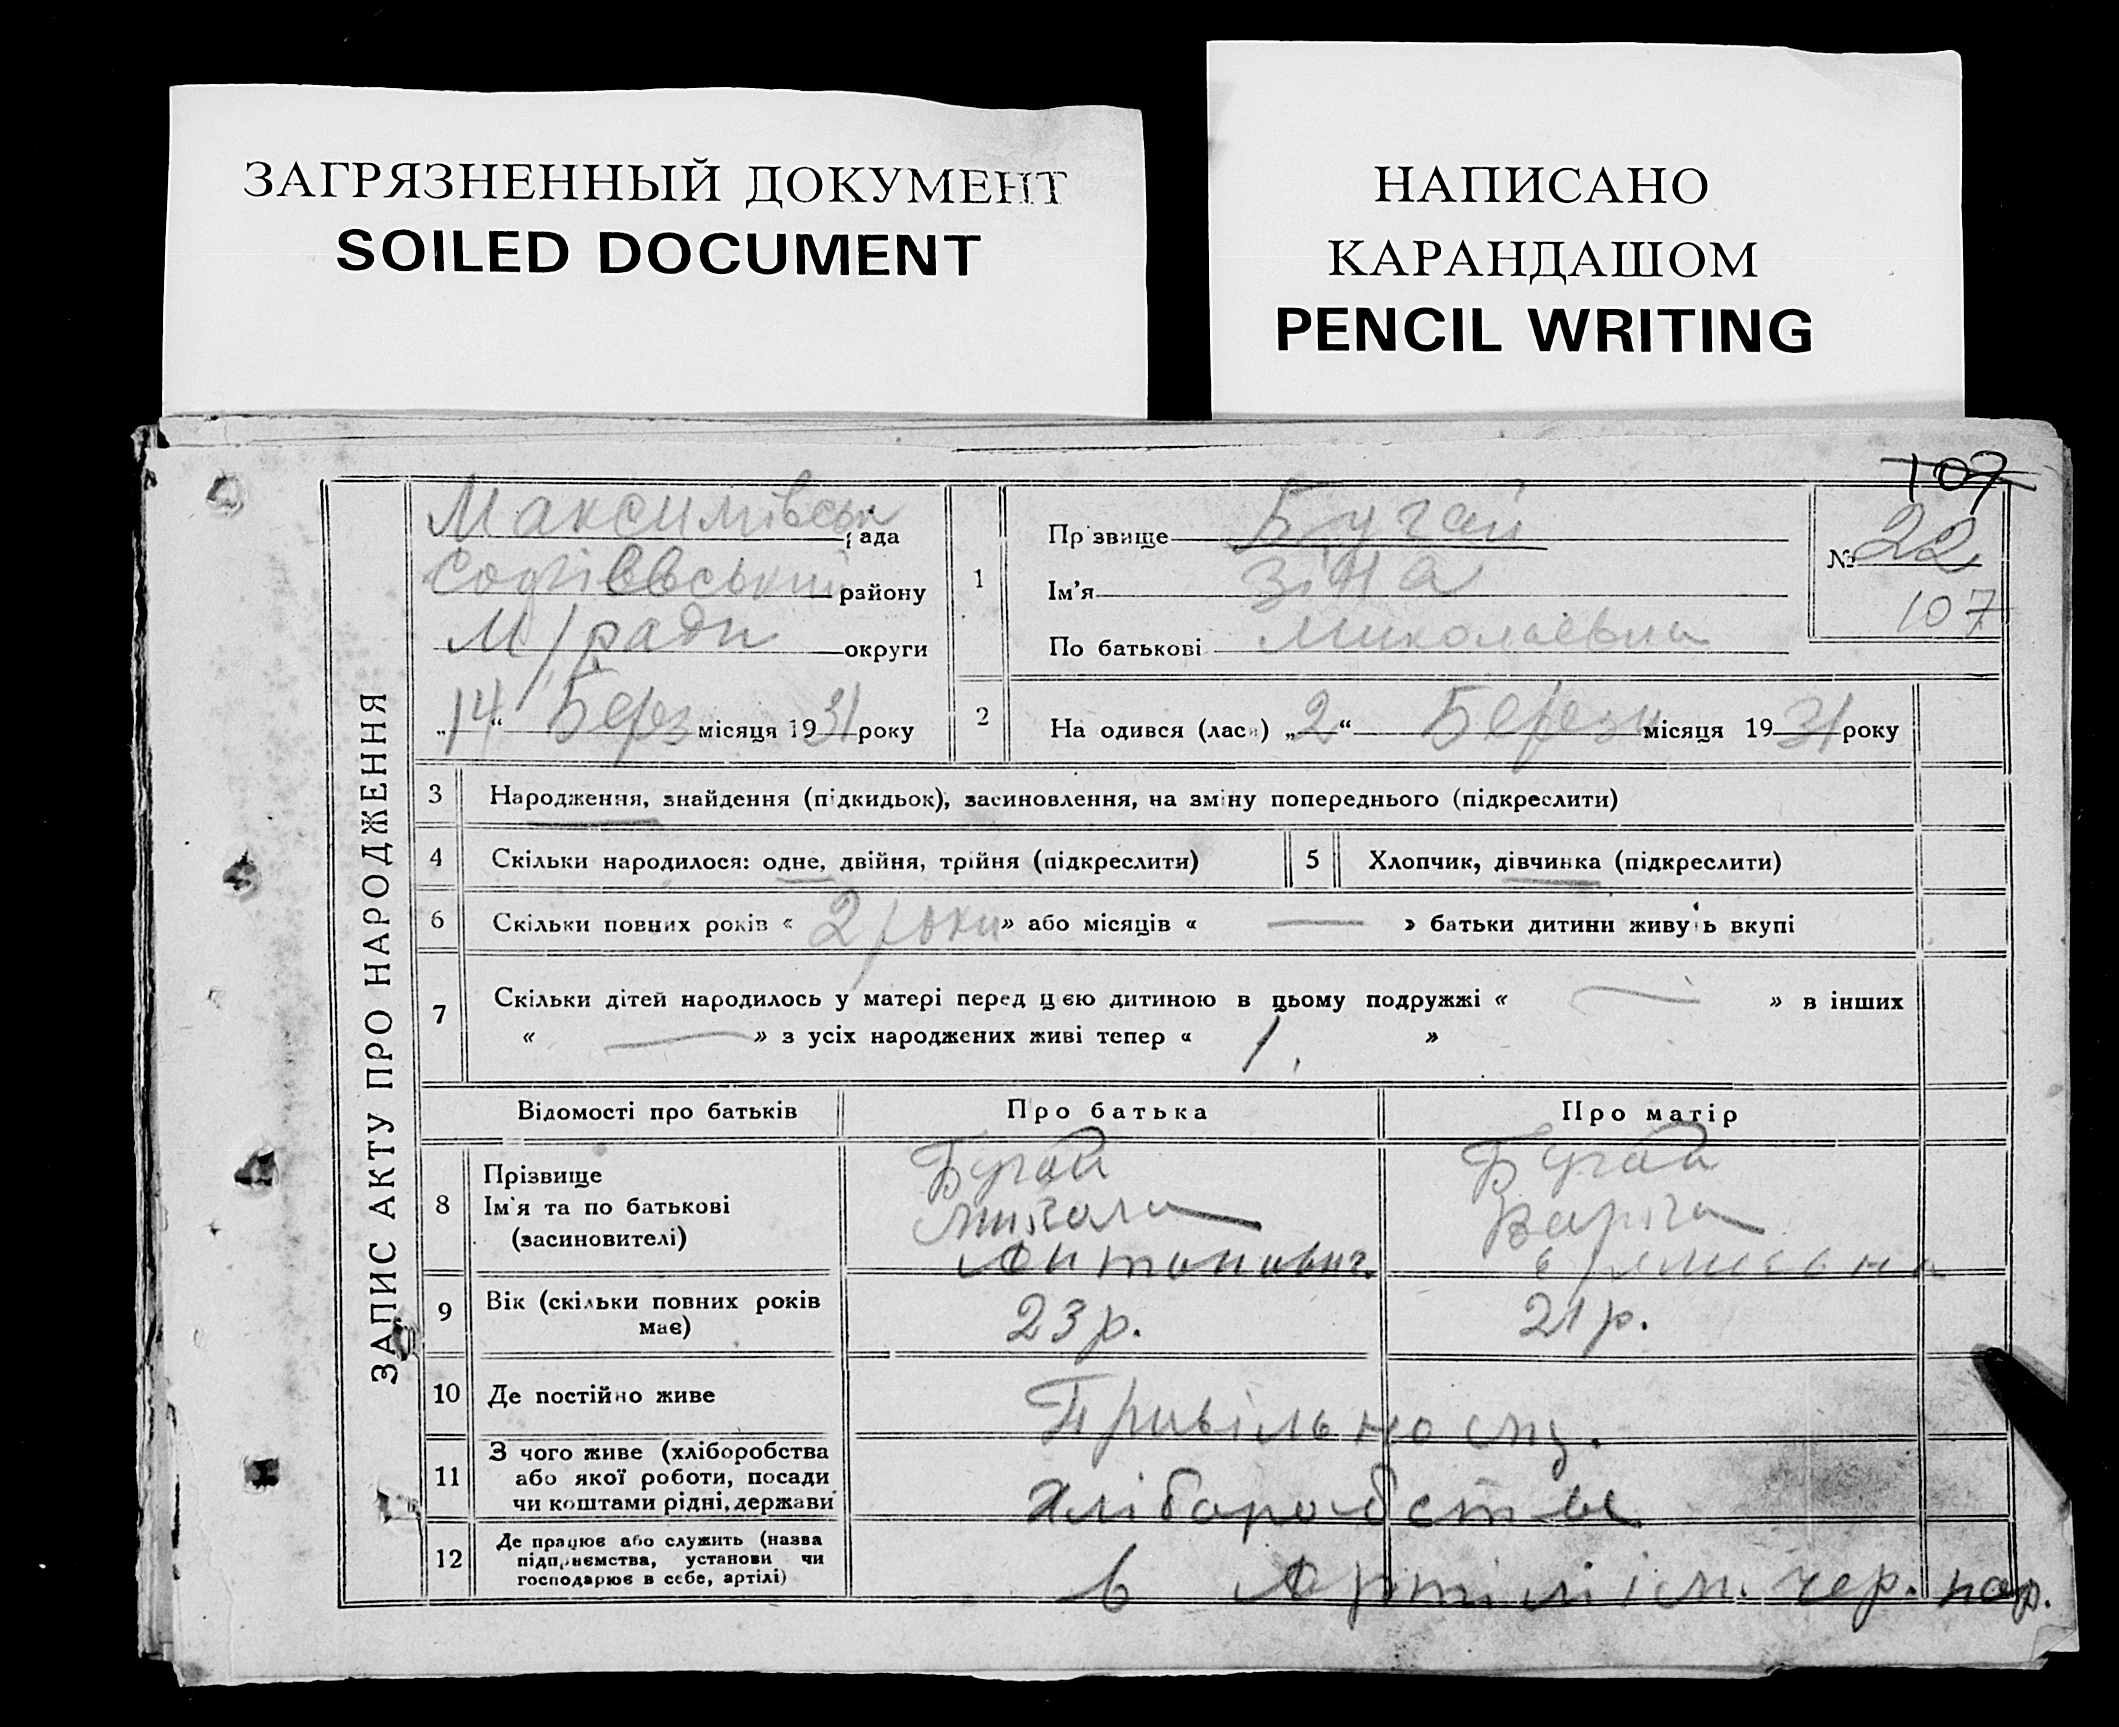 ЗАГРЯЗНЕННЫЙ ДОКУМЕНТ
SOILED DOCUMENT
НАПИСАНО
КАРАНДАШОМ
PENCIL WRITING
ЗАПИС АКТУ ПРО НАРОДЖЕННЯ
Максимівськ рада
Софіввський району
М/ради округи
„14“ Берез місяця 1931 року
1
Прізвище Бугай
Ім'я Зіна
По батькові Миколаєвна
107
№ 22
107
2 На одився (лася) „2“ Березн місяця 1931 року
3 Народження, знайдення (підкидьок), засиновлення, на зміну попереднього (підкреслити)
4 Скільки народилося: одне, двійня, трійня (підкреслити)
5 Хлопчик, дівчинка (підкреслити)
6 Скільки повних років « 2 роки » або місяців « — » батьки дитини живуть вкупі
7 Скільки дітей народилось у матері перед цією дитиною в цьому подружжі « — » в інших
« — » з усіх народжених живі тепер « 1. »
Відомості про батьків Про батька Про матір
8 Прізвище
Ім'я та по батькові
(засиновителі)
Бугай
Микола
Антонович
Бугай
9 Вік (скільки повних років
має)
23 р. 21 р.
10 Де постійно живе Привільно
11 З чого живе (хліборобства
або якої роботи, посади
чи коштами рідні, держави
Хліборобства
12 Де працює або служить (назва
підприємства, установи чи
господарює в себе, артілі)
в Артілі ім. чер. пар.